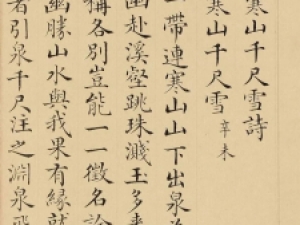 寒山千尺雪詩
寒山千尺雪 辛未
一帶連寒山山下出泉
赴溪壑跳珠濺玉多
稱各別豈能一一徵名論
幽勝山水與我果有緣就
者引泉千尺注之淵泉飛